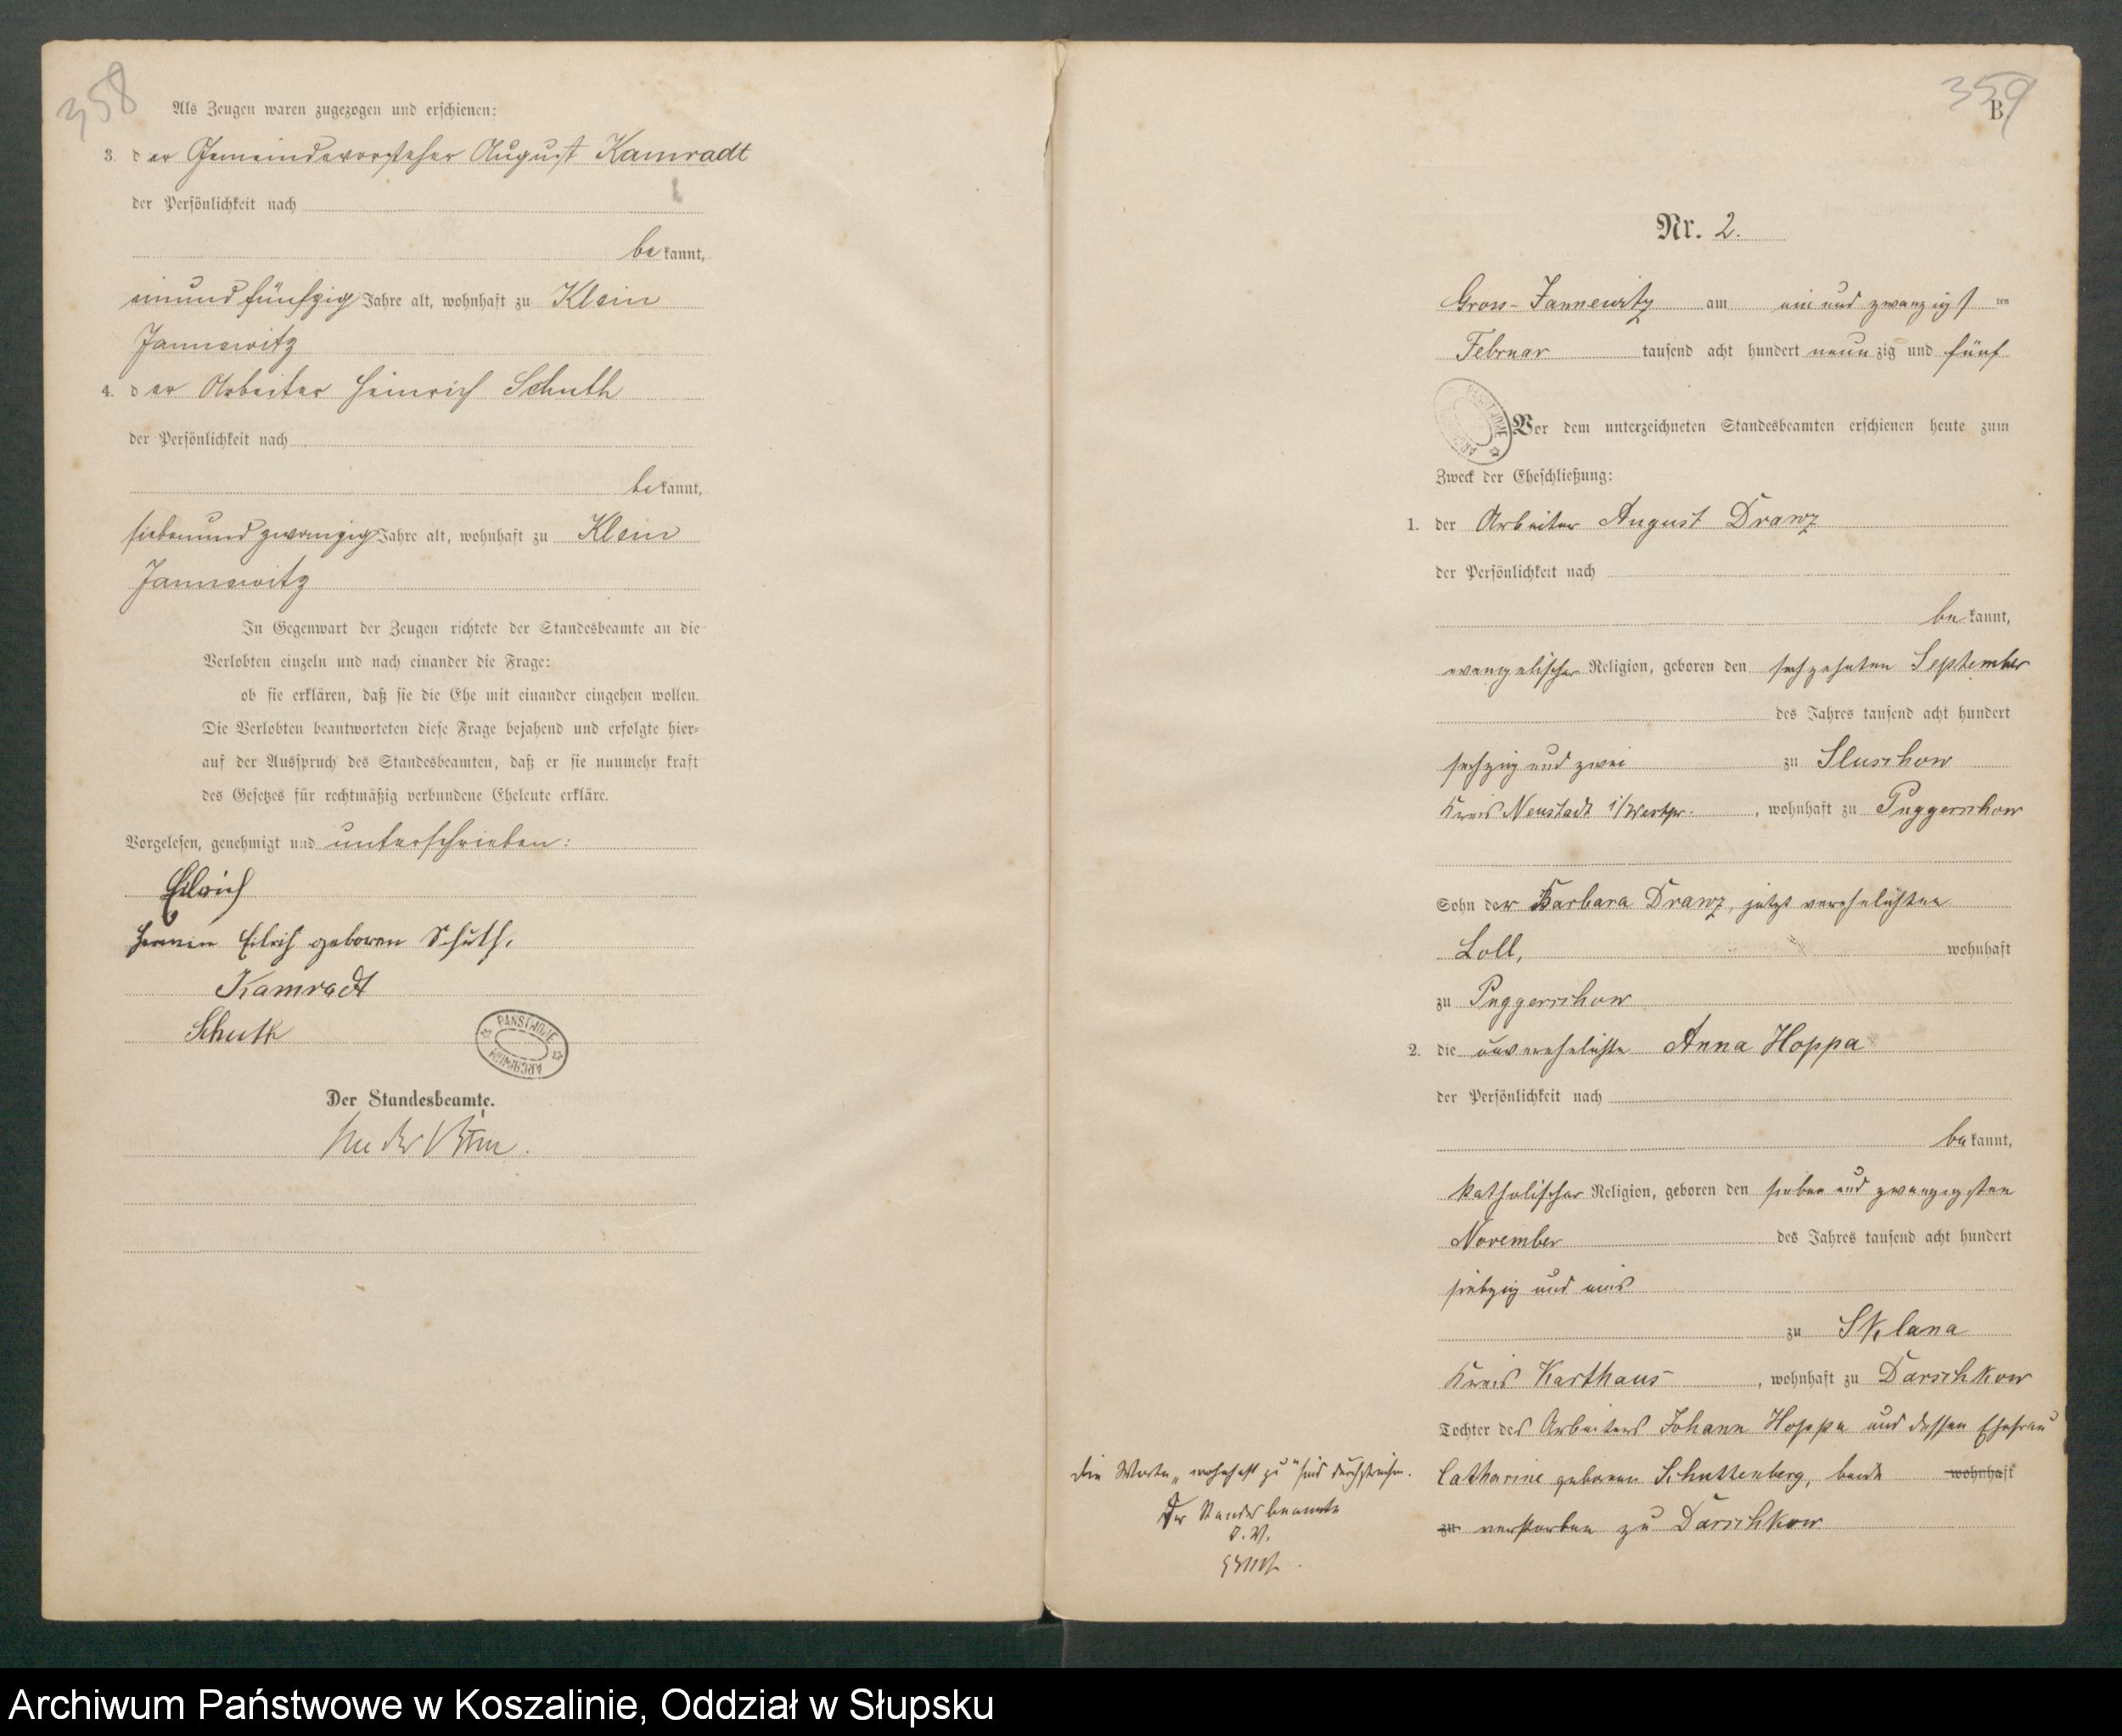 358
Als Zeugen waren zugezogen und erschienen:
3. der Gemeindevorsteher August Kamradt
der Persönlichkeit nach
bekannt,
einundfünfzig Jahre alt, wohnhaft zu Klein
Jannewitz
4. der Arbeiter Heinrich Schuth
der Persönlichkeit nach
bekannt,
siebenundzwanzig Jahre alt, wohnhaft zu Klein
Jannewitz
In Gegenwart der Zeugen richtete der Standesbeamte an die
Verlobten einzeln und nach einander die Frage:
ob sie erklären, daß sie die Ehe mit einander eingehen wollen.
Die Verlobten beantworteten diese Frage bejahend und erfolgte hier-
auf der Ausspruch des Standesbeamten, daß er sie nunmehr kraft
des Gesetzes für rechtmäßig verbundene Eheleute erkläre.
Vorgelesen, genehmigt und unterschrieben:
Eilrich
Eilrich geboren Schuth.
Kamradt
Schuth
PAŃSTWOWE ARCHIWUM
Der Standesbeamte.
359
B.
Nr. 2.
Gross-Jannewitz am ein und zwanzigsten
Februar tausend acht hundert neunzig und fünf
Vor dem unterzeichneten Standesbeamten erschienen heute zum
Zweck der Eheschließung:
1. der Arbeiter August Drawz
der Persönlichkeit nach
bekannt,
evangelischer Religion, geboren den sechzehnten September
des Jahres tausend acht hundert
sechzig und zwei zu Sluschow
Kreis Neustadt i/Westpr., wohnhaft zu Puggerschow
Sohn der Barbara Drawz, jetzt verehelichten
Loll, wohnhaft
zu Puggerschow
2. die unverehelichte Anna Hoppa
der Persönlichkeit nach
bekannt,
katholischer Religion, geboren den sieben und zwanzigsten
November des Jahres tausend acht hundert
siebzig und eins
zu Sklana
Kreis Karthaus, wohnhaft zu Darschkow
Tochter des Arbeiters Johann Hoppa und dessen Ehefrau
Catharine geboren Schuttenberg, beide wohnhaft
zu verstorben zu Darschkow
Die Worte „wohnhaft zu" sind durchstrichen.
Der Standesbeamte
J. V.
Archiwum Państwowe w Koszalinie, Oddział w Słupsku